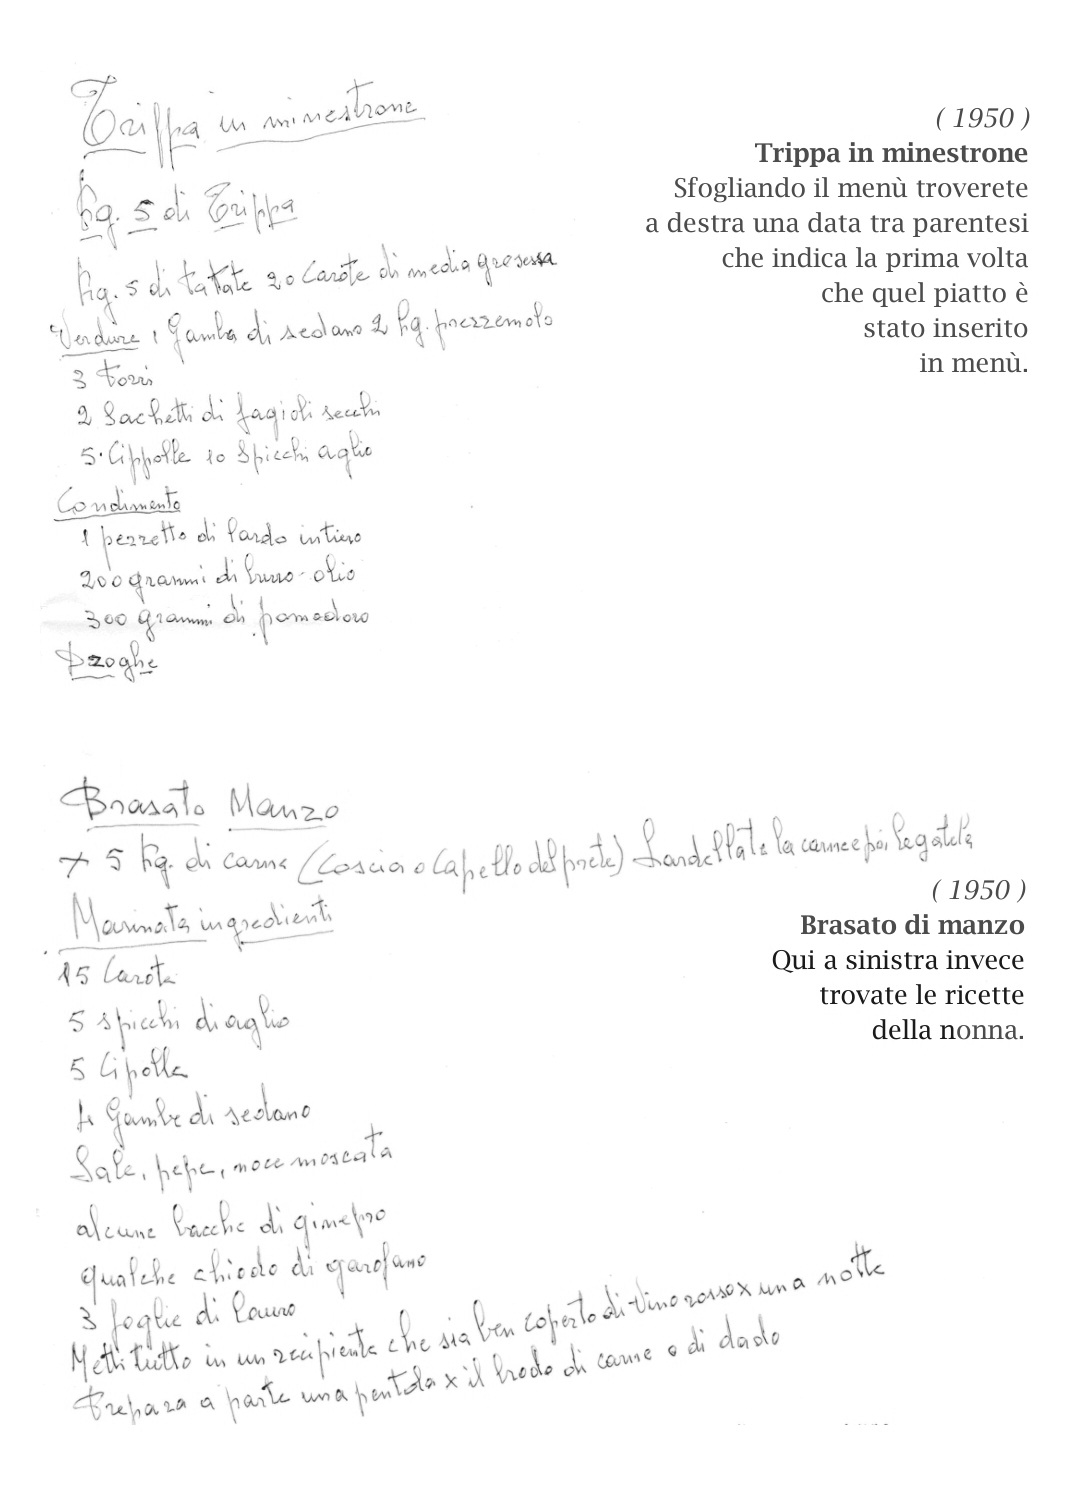 Trippa in minestrone
Kg. 5 di Trippa
Kg. 5 di tatate 20 Carote di media grosessa
Verdure 1 Gamba di sedano 2 hg. prezzemolo
3 Porri
2 Sachetti di fagioli secchi
5. Cippolle 10 Spicchi aglio
Condimento
1 pezzetto di lardo intiero
200 grammi di burro-olio
300 grammi di pomodoro
Droghe
( 1950 )
Trippa in minestrone
Sfogliando il menù troverete
a destra una data tra parentesi
che indica la prima volta
che quel piatto è
stato inserito
in menù.
Brasato Manzo
x 5 Kg. di carne (Coscia o Capello del prete) Lardellate la carne e poi legatela
Marinata ingredienti
15 Carote
5 spicchi di aglio
5 Cipolle
4 Gambe di sedano
Sale, pepe, noce moscata
alcune bacche di ginepro
qualche chiodo di garofano
3 foglie di lauro
Metti tutto in un recipiente che sia ben coperto di vino rosso x una notte
Prepara a parte una pentola x il brodo di carne o di dado
( 1950 )
Brasato di manzo
Qui a sinistra invece
trovate le ricette
della nonna.